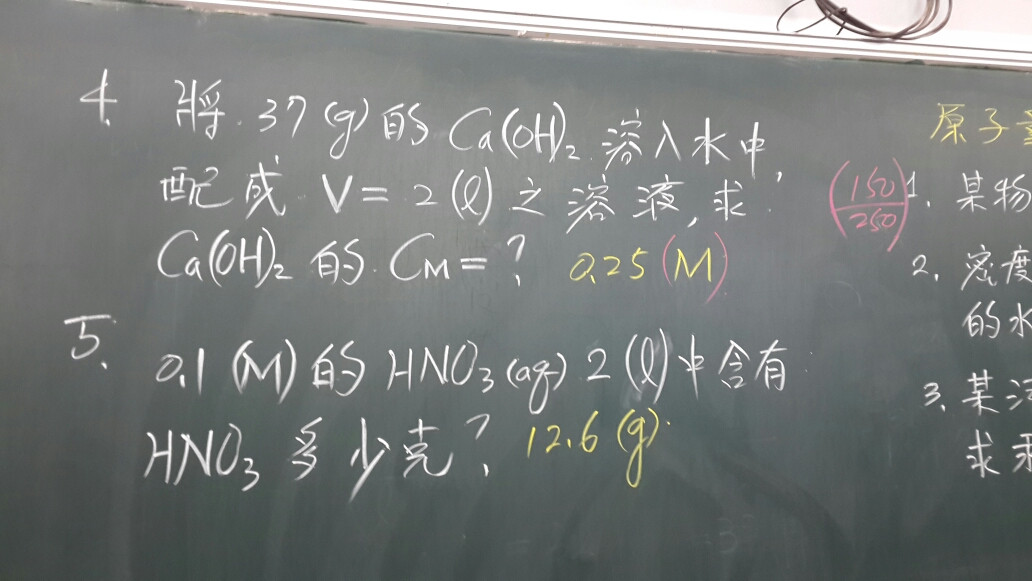 4. 將 37(g)的 Ca(OH)₂ 溶入水中,
配成 V=2(ℓ)之溶液,求
Ca(OH)₂ 的 CM=? 0.25(M)
5. 0.1(M)的 HNO₃(aq) 2(ℓ)中含有
HNO₃ 多少克? 12.6(g)
原子
(150/250)
1. 某物
2. 密度
的水
3. 某
求